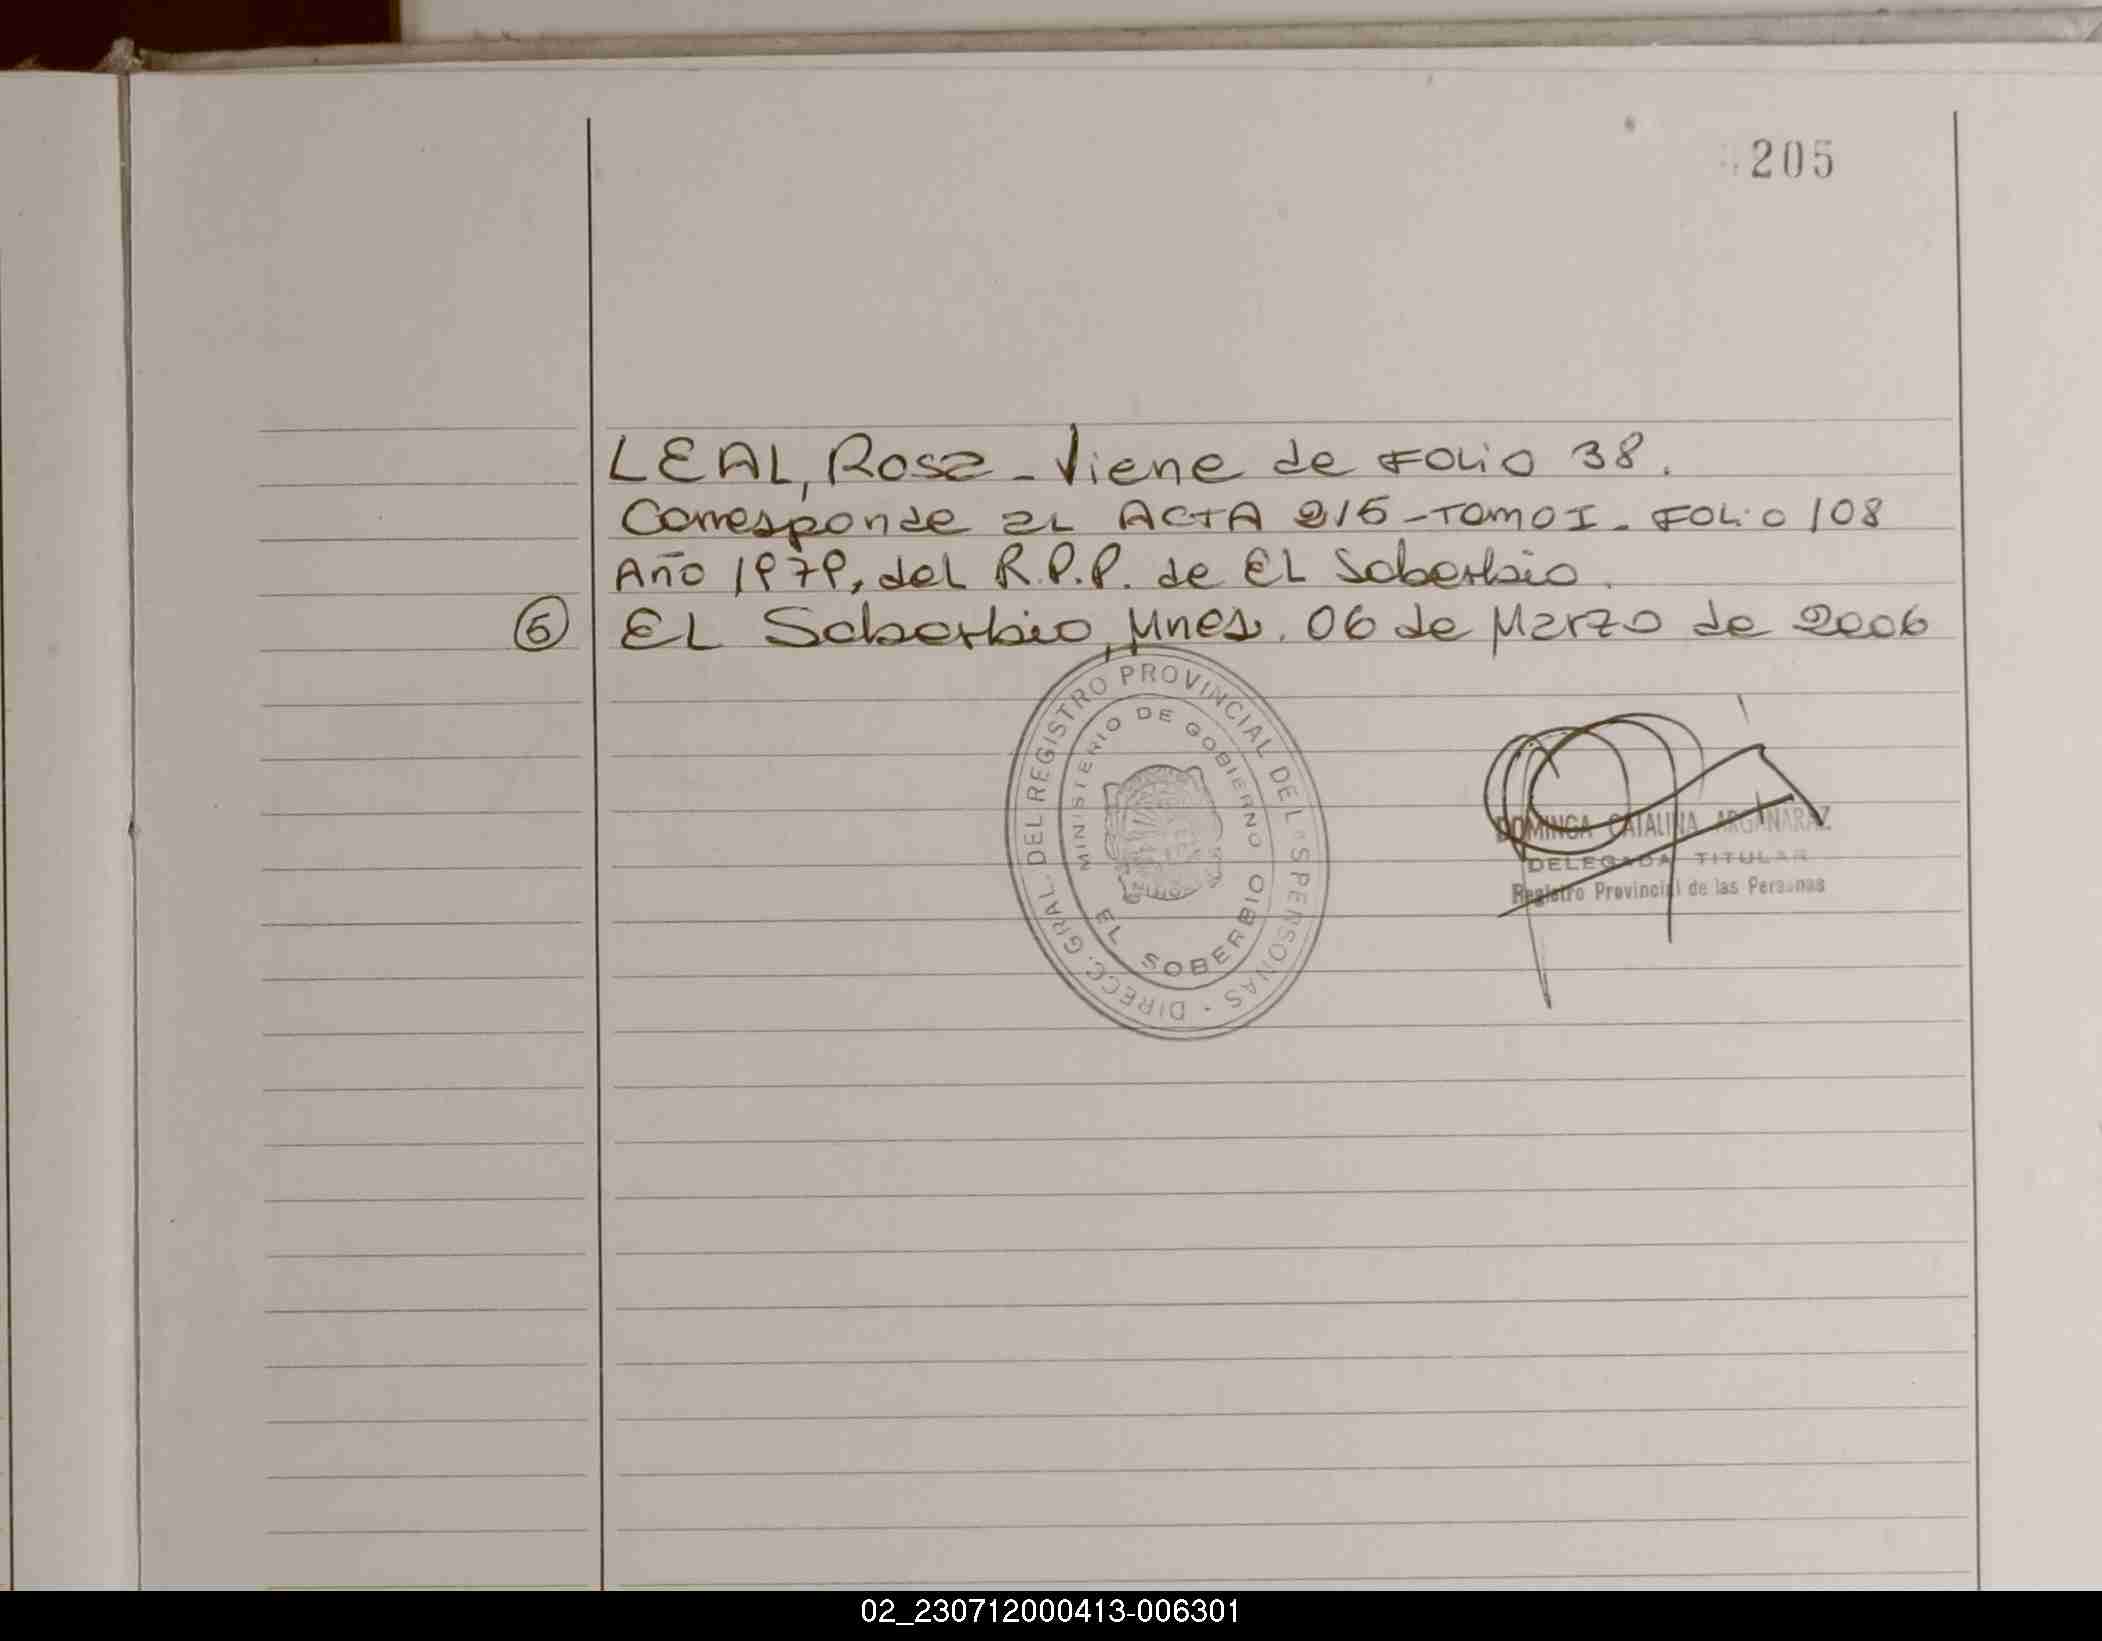 205
LEAL, Rosa - Viene de FOLIO 38.
Corresponde al ACTA 215 - TOMO I - FOLIO 108
Año 1979, del R.P.P. de EL Soberbio.
6 EL Soberbio, Mnes. 06 de Marzo de 2006
DIRECC. GRAL. DEL REGISTRO PROVINCIAL DE LAS PERSONAS
MINISTERIO DE GOBIERNO
EL SOBERBIO
DOMINGA CATALINA ARGAÑARAZ
DELEGADA TITULAR
Registro Provincial de las Personas
02_230712000413-006301